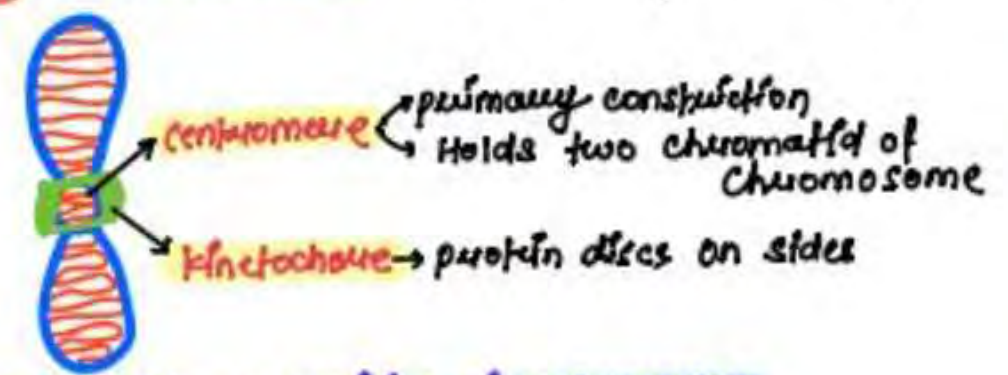 centromere → primary constriction
→ Holds two chromatid of
chromosome
kinetochore → protein discs on sides